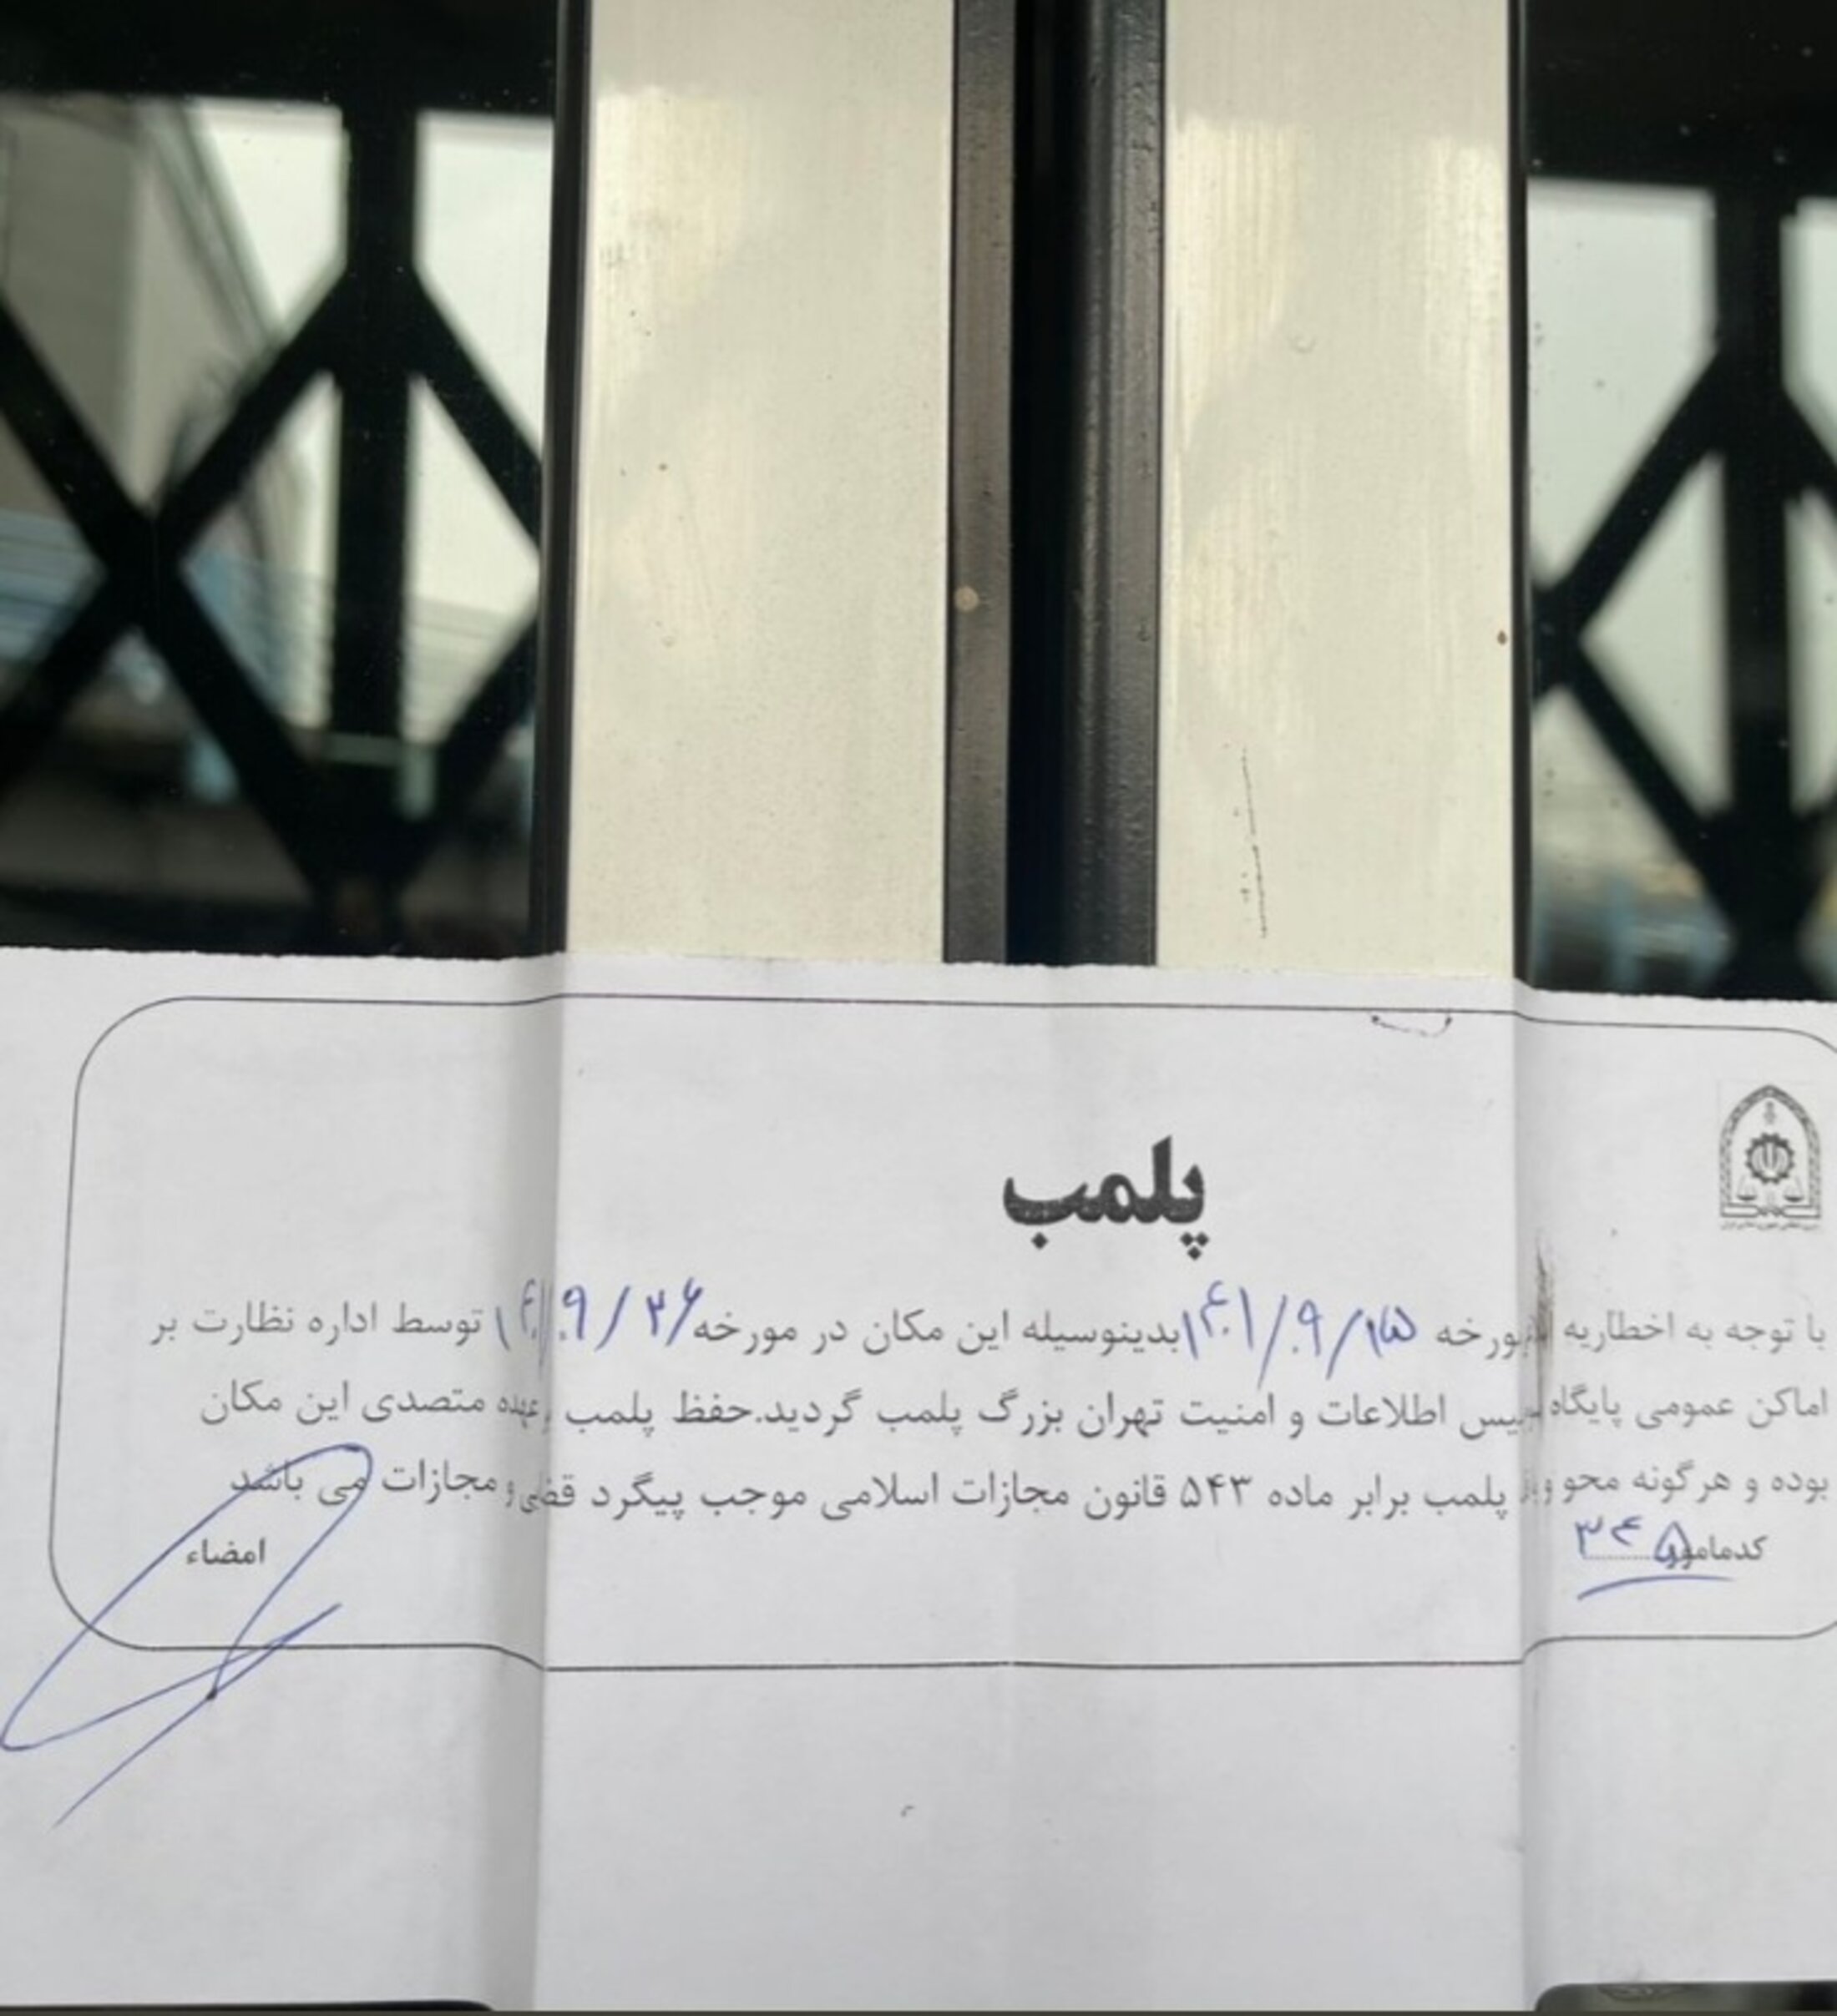 پلمب
با توجه به اخطاریه مورخه ۱۴۰۱/۰۹/۱۵ بدینوسیله این مکان در مورخه ۱۴۰۱/۰۹/۲۶ توسط اداره نظارت بر
اماکن عمومی پایگاه پلیس اطلاعات و امنیت تهران بزرگ پلمب گردید.حفظ پلمب عهده متصدی این مکان
بوده و هرگونه محو و پلمب برابر ماده ۵۴۳ قانون مجازات اسلامی موجب پیگرد و مجازات می باشد
کدمامور ۳۴۵ امضاء